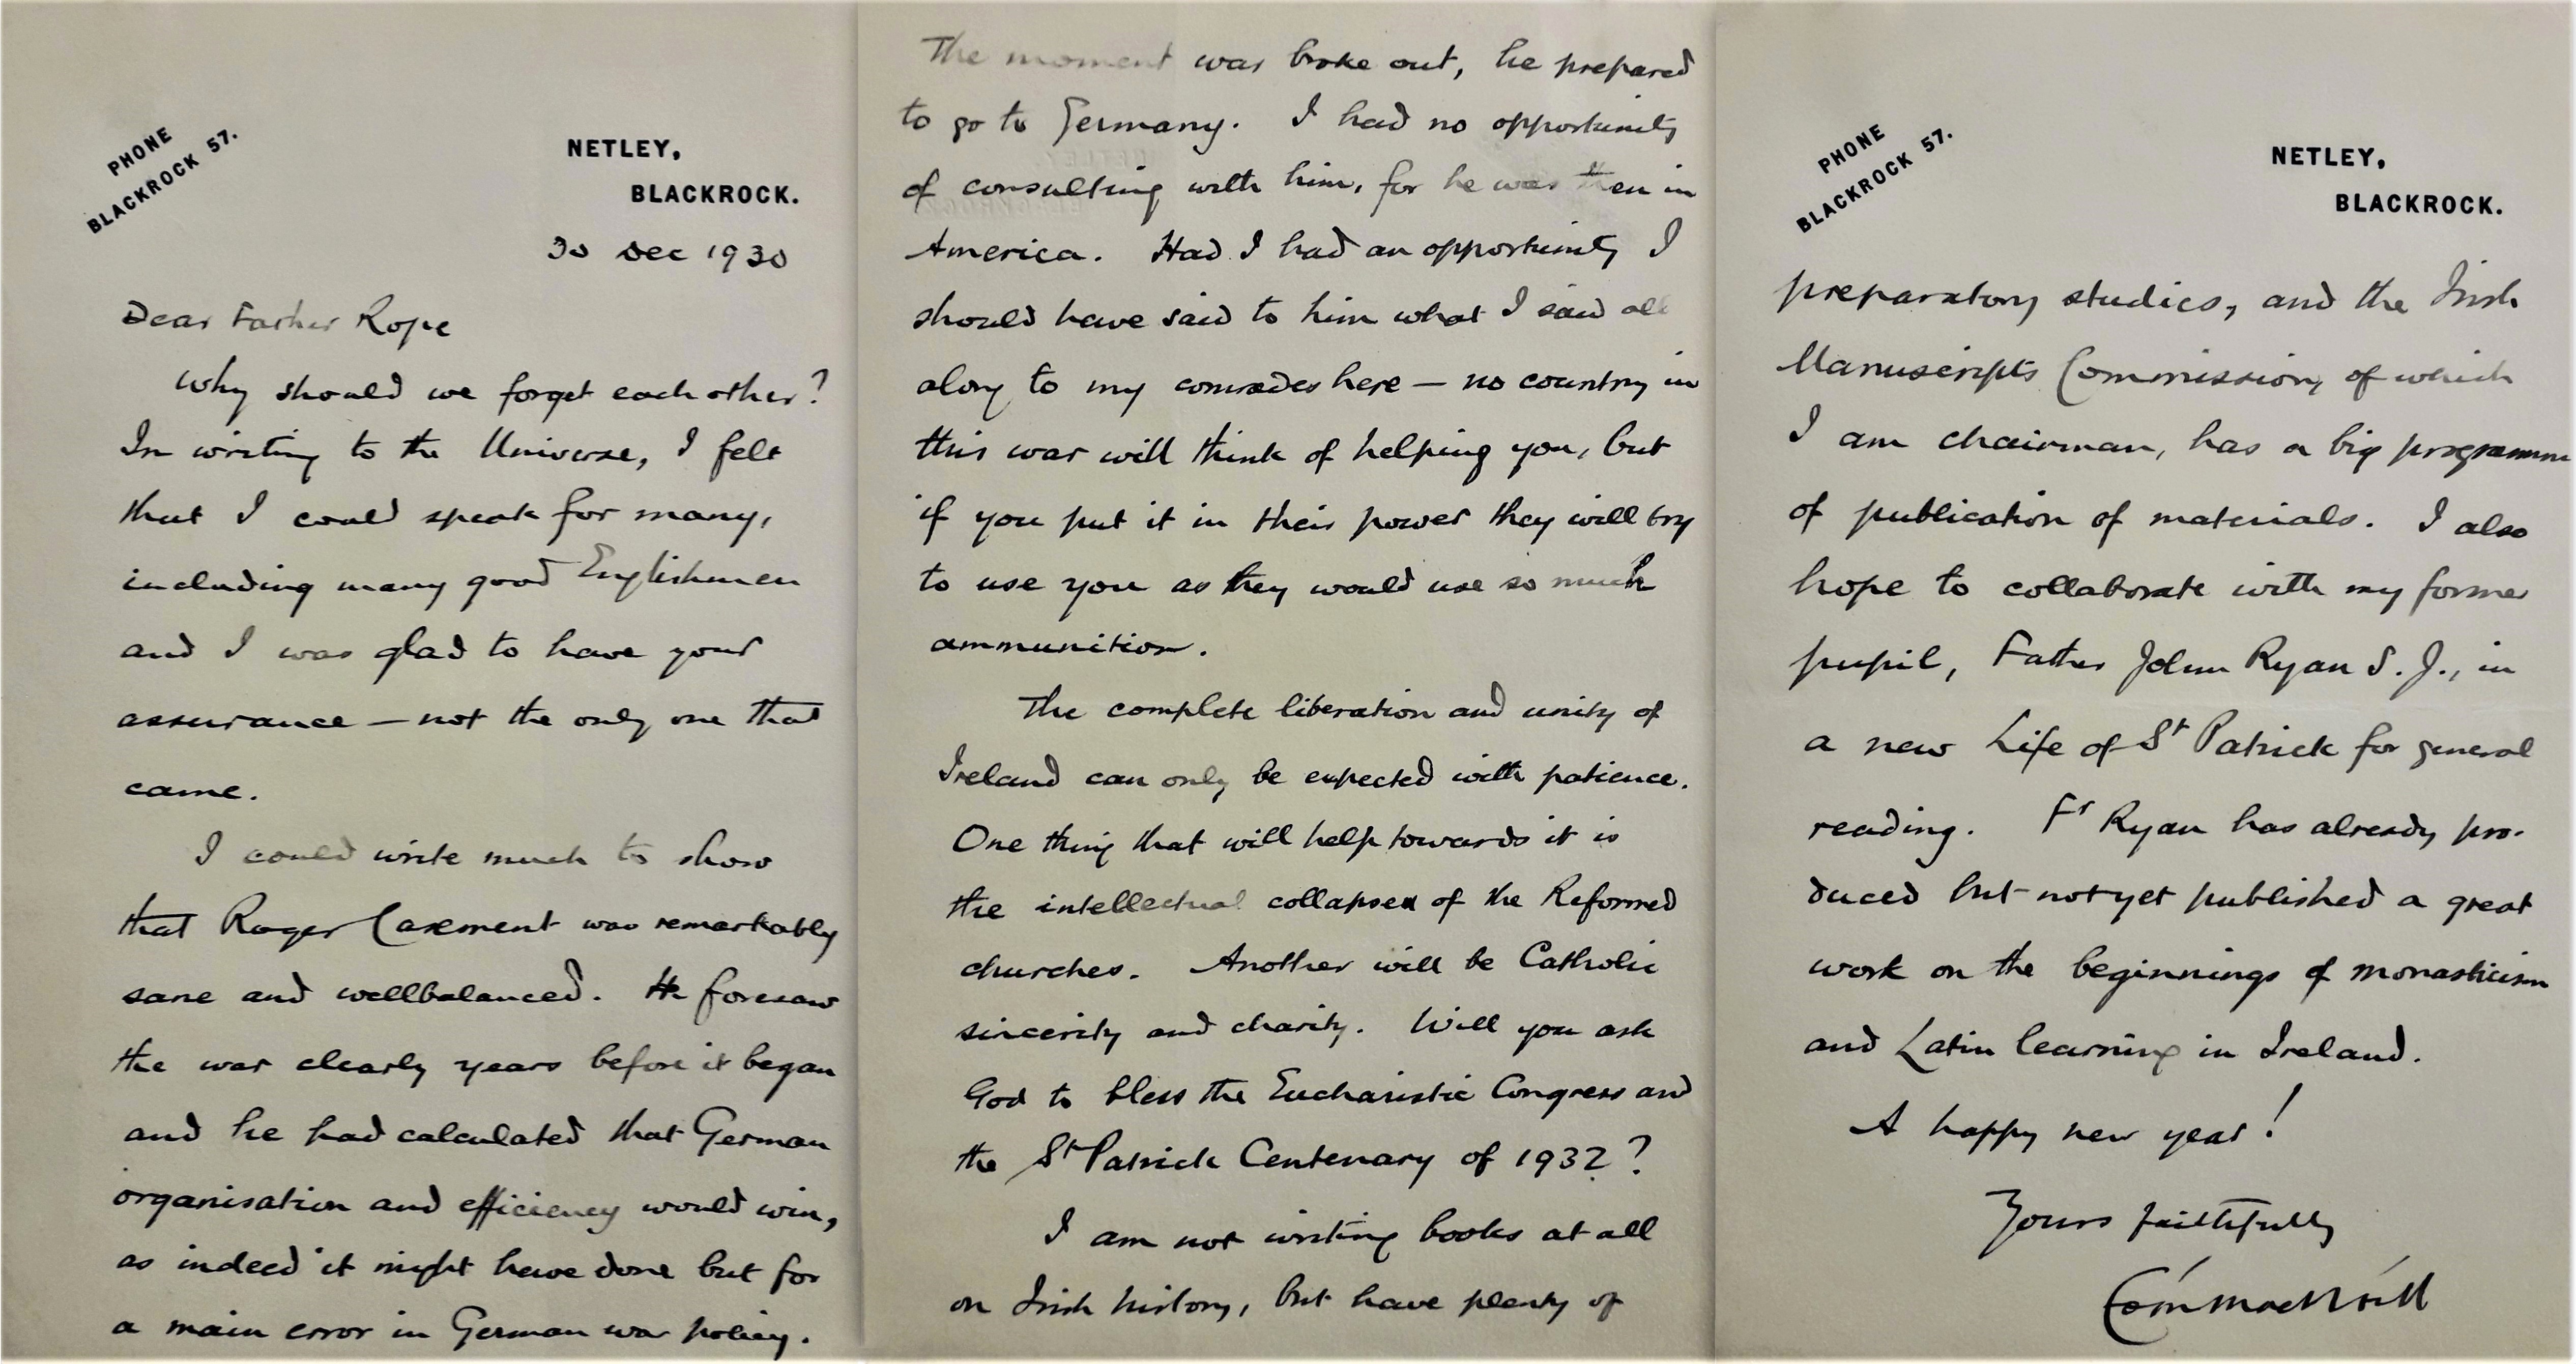 PHONE
BLACKROCK 57.
NETLEY,
BLACKROCK.
30 Dec 1930
Dear Father Rope
Why should we forget each other?
In writing to the Universe, I felt
that I could speak for many,
including many good Englishmen
and I was glad to have your
assurance — not the only one that
came.
I could write much to show
that Roger Casement was remarkably
sane and wellbalanced. He foresaw
the war clearly years before it began
and he had calculated that German
organisation and efficiency would win,
as indeed it might have done but for
a main error in German war policy.
The moment war broke out, he prepared
to go to Germany. I had no opportunity
of consulting with him, for he was then in
America. Had I had an opportunity I
should have said to him what I said all
along to my comrades here — no country in
this war will think of helping you, but
if you put it in their power they will try
to use you as they would use so much
ammunition.
The complete liberation and unity of
Ireland can only be expected with patience.
One thing that will help towards it is
the intellectual collapse of the Reformed
churches. Another will be Catholic
sincerity and charity. Will you ask
God to bless the Eucharistic Congress and
the St Patrick Centenary of 1932?
I am not writing books at all
on Irish history, but have plenty of
PHONE
BLACKROCK 57.
NETLEY,
BLACKROCK.
preparatory studies, and the Irish
Manuscripts Commission, of which
I am chairman, has a big programme
of publication of materials. I also
hope to collaborate with my former
pupil, Father John Ryan S.J., in
a new Life of St Patrick for general
reading. Fr Ryan has already pro-
duced but not yet published a great
work on the beginnings of monasticism
and Latin learning in Ireland.
A happy new year!
Yours faithfully
Eóin MacNéill